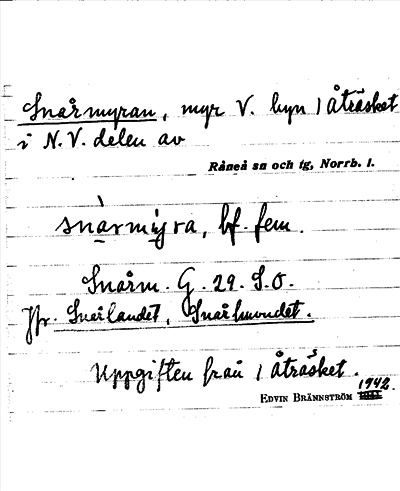 Snårmyran, myr V. byn 1 Åträsket
i N.V. delen av
Råneå sn och tg, Norrb. l.
snårmyra, bf. fem.
Snårm. G. 29. S.O.
Jfr. Snårlandet, Snårhuvudet.
Uppgiften från 1 Åträsket.
1942.
EDVIN BRÄNNSTRÖM